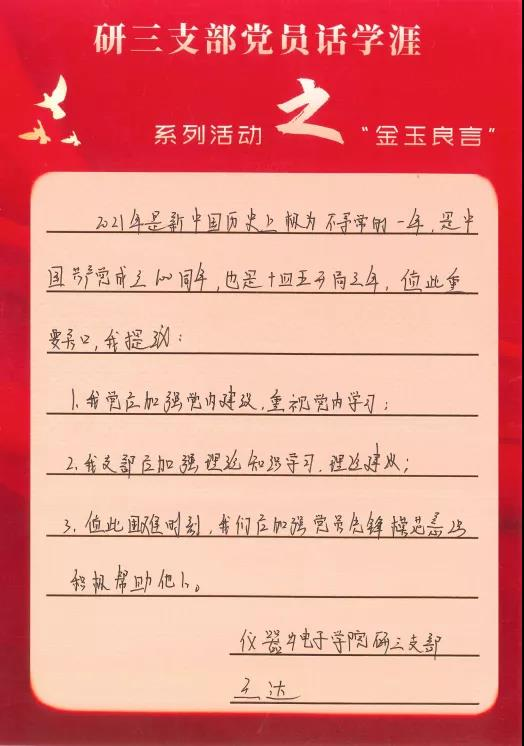 研三支部党员话学涯
系列活动 之 “金玉良言”
2021年是新中国历史上极为不寻常的一年,是中
国共产党成立100周年,也是十四五开局之年,值此重
要关口,我提议:
1.我党应加强党内建设,重视党内学习;
2.我支部应加强理论知识学习,理论建设;
3.值此困难时刻,我们应加强党员先锋模范意识
积极帮助他人。
仪器与电子学院研三支部
王达